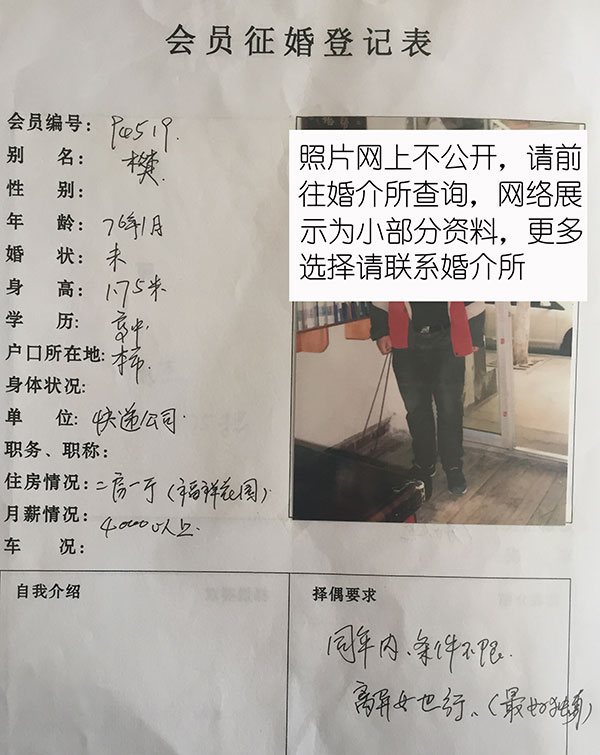 会员征婚登记表
会员编号： P4519.
别 名： 樊
性 别：
年 龄： 76年1月
婚 状： 未
身 高： 1.75米
学 历： 高中
户口所在地： 本市
身体状况:
单 位： 快递公司
职务、职称：
住房情况： 二房一厅（福祥花园）
月薪情况： 4000以上.
车 况：
照片网上不公开，请前
往婚介所查询，网络展
示为小部分资料，更多
选择请联系婚介所
自我介绍
择偶要求
同年内、条件不限.
离异女也行、（最好